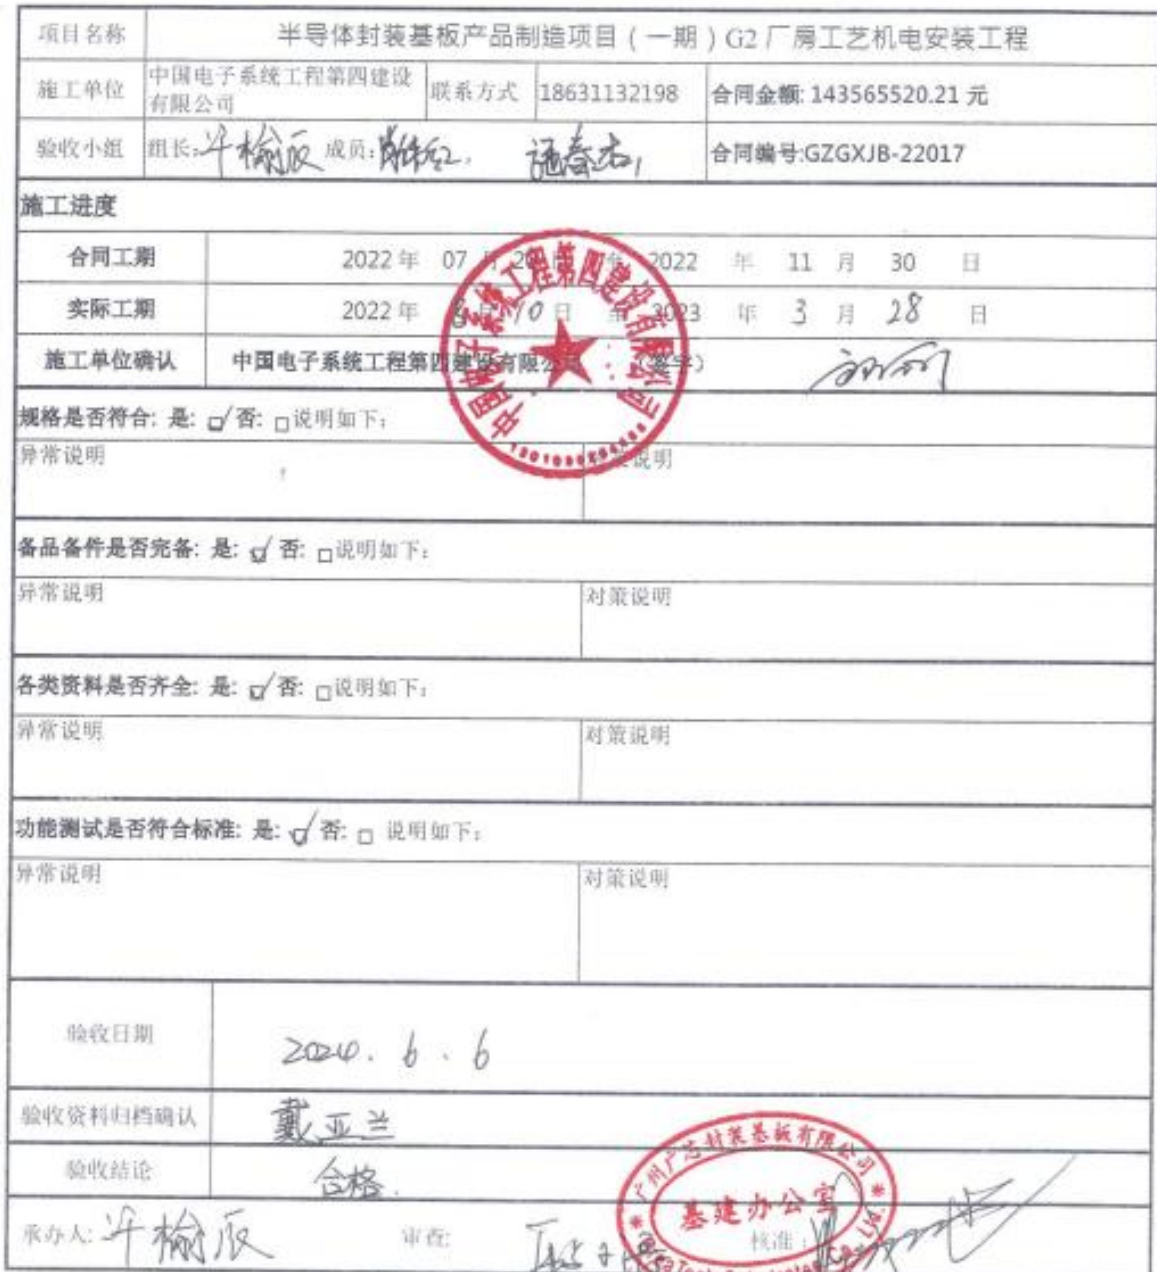 项目名称 半导体封装基板产品制造项目（一期）G2 厂房工艺机电安装工程
施工单位 中国电子系统工程第四建设有限公司 联系方式 18631132198 合同金额: 143565520.21 元
验收小组 组长: 成员: 合同编号:GZGXJB-22017
施工进度
合同工期 2022 年 07 月 20 日 至 2022 年 11 月 30 日
实际工期 2022 年 8 月 10 日 至 2023 年 3 月 28 日
施工单位确认 中国电子系统工程第四建设有限公司 （签字）
中国电子系统工程第四建设有限公司
规格是否符合: 是: ☑ 否: □说明如下:
异常说明 对策说明
备品备件是否完备: 是: ☑ 否: □说明如下:
异常说明 对策说明
各类资料是否齐全: 是: ☑ 否: □说明如下:
异常说明 对策说明
功能测试是否符合标准: 是: ☑ 否: □ 说明如下:
异常说明 对策说明
验收日期 2024. 6. 6
验收资料归档确认 戴亚兰
验收结论 合格.
广州广芯封装基板有限公司
基建办公室
承办人: 审查: 核准: